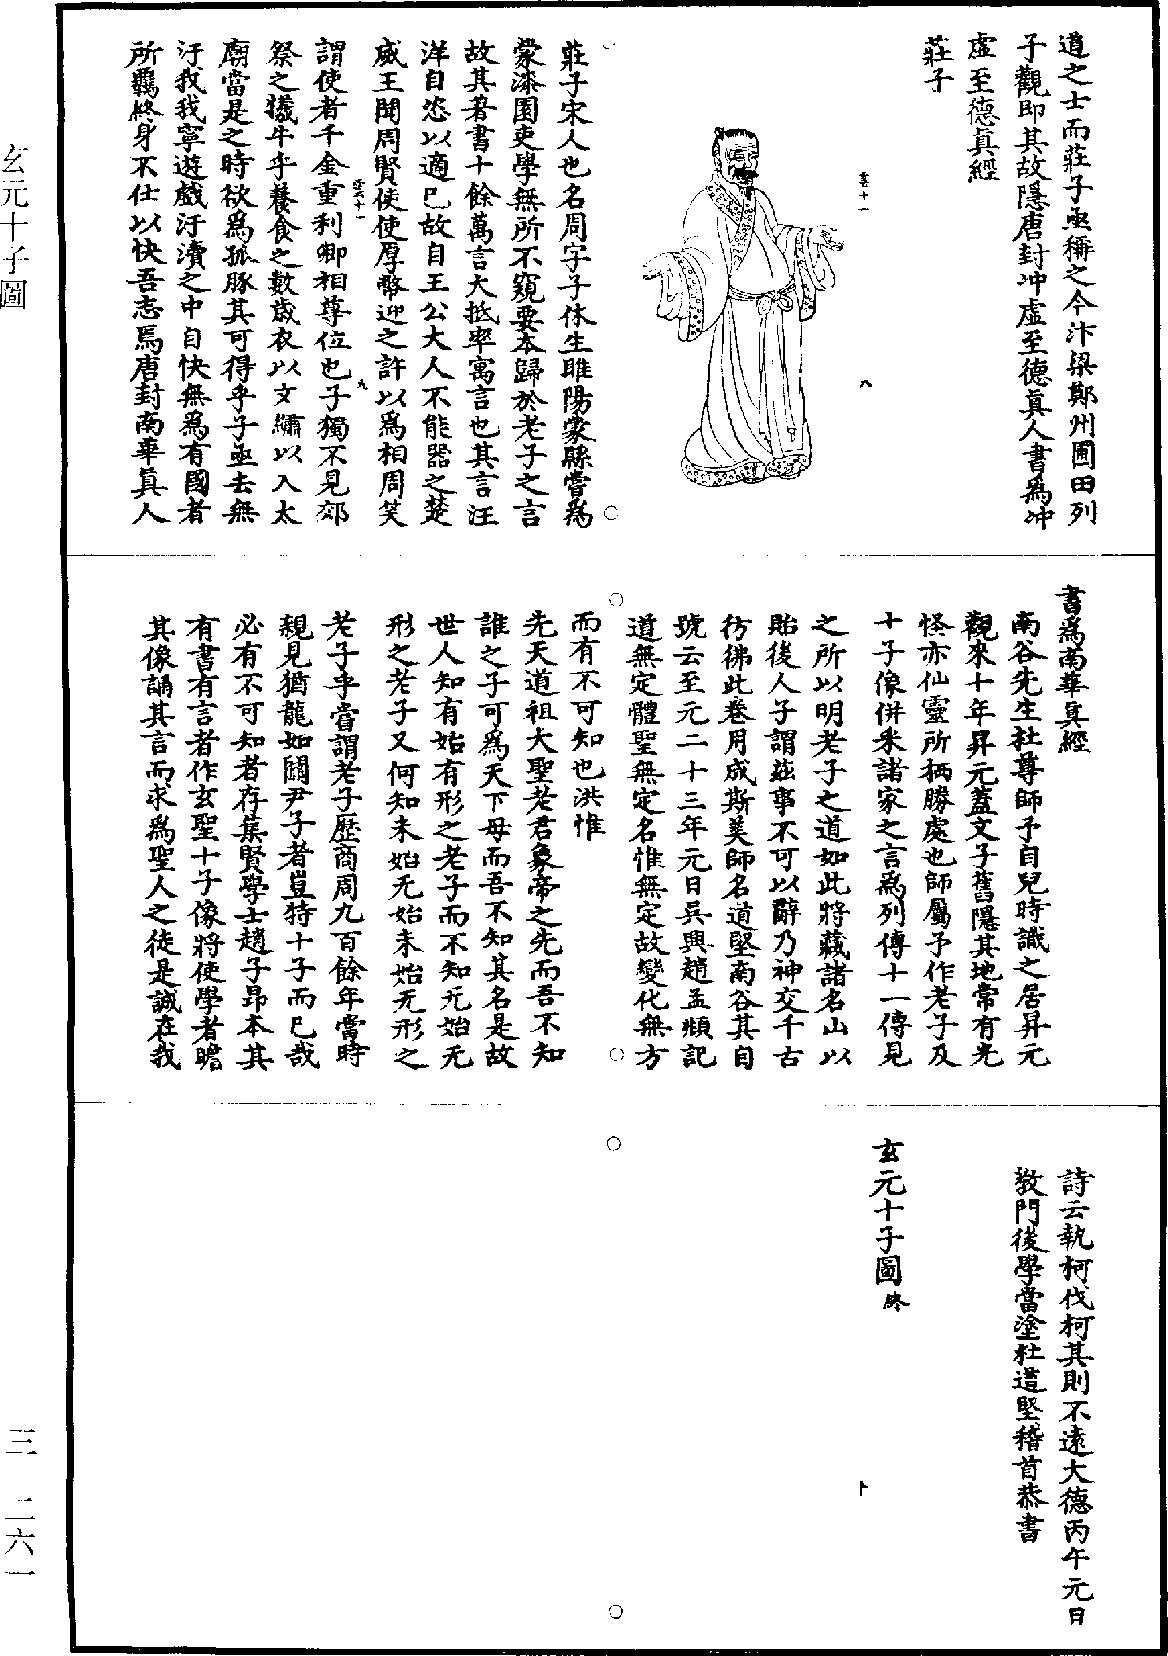 道之士而莊子亟稱之今汴梁鄭州圃田列
子觀即其故隱唐封冲虛至德真人書為冲
虛至德真經
莊子
雲十一
八
莊子宋人也名周字子休生睢陽蒙縣嘗為
蒙漆園吏學無所不窺要本歸於老子之言
故其著書十餘萬言大抵率寓言也其言汪
洋自恣以適己故自王公大人不能器之楚
威王聞周賢使使厚幣迎之許以為相周笑
九
謂使者千金重利卿相尊位也子獨不見郊
祭之犧牛乎養食之數歲衣以文繡以入太
廟當是之時欲為孤豚其可得乎子亟去無
汙我我寧遊戲汙瀆之中自快無為有國者
所羈終身不仕以快吾志焉唐封南華真人
書為南華真經
南谷先生杜尊師予自兒時識之居昇元
觀來十年昇元蓋文子舊隱其地常有光
怪亦仙靈所栖勝處也師屬予作老子及
十子像併采諸家之言為列傳十一傳見
之所以明老子之道如此將藏諸名山以
貽後人子謂茲事不可以辭乃神交千古
彷彿此卷用成斯美師名道堅南谷其自
號云至元二十三年元日吳興趙孟頫記
道無定體聖無定名惟無定故變化無方
而有不可知也洪惟
先天道祖大聖老君象帝之先而吾不知
誰之子可為天下母而吾不知其名是故
世人知有始有形之老子而不知无始无
形之老子又何知未始无始未始无形之
老子乎嘗謂老子歷商周九百餘年當時
親見猶龍如關尹子者豈特十子而已哉
必有不可知者存集賢學士趙子昂本其
有書有言者作玄聖十子像將使學者瞻
其像誦其言而求為聖人之徒是誠在我
詩云執柯伐柯其則不遠大德丙午元日
教門後學當塗杜道堅稽首恭書
玄元十子圖終
玄元十子圖
三 二六一